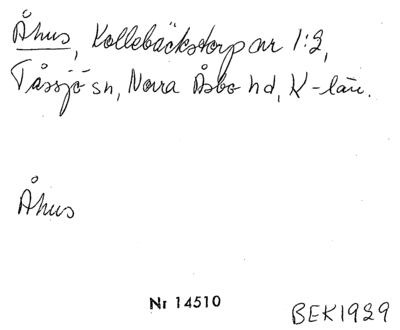 Åhus, Kollebäckstorp nr 1:2,
Tåssjö sn, Norra Åsbo hd, K-län.
Åhus
Nr 14510
BEK1929